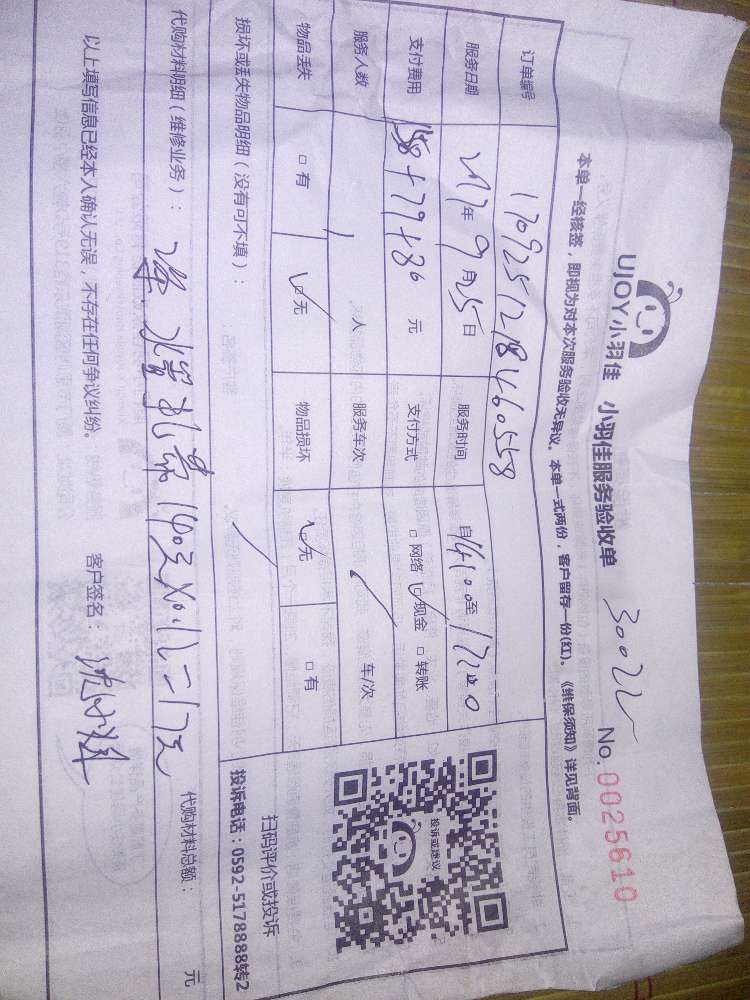 UJOY小羽佳 小羽佳服务验收单 30022 No.0025610
本单一经核签，即视为对本次服务验收无异议。本单一式两份，客户留存一份(红)。《维保须知》详见背面。
订单编号 170925121846058
服务日期 2017年9月25日 服务时间 自14:00至17:00
支付费用 158+79+36 元 支付方式 □网络 ☑现金 □转账
服务人数 1 人 服务车次 / 车/次
物品丢失 □有 ☑无 物品损坏 ☑无 □有
损坏或丢失物品明细（没有可不填）： /
扫码评价或投诉
投诉电话：0592-5178888转2
投诉或建议
代购材料明细（维修业务）： 代购材料总额： 元
以上填写信息已经本人确认无误，不存在任何争议纠纷。 客户签名：